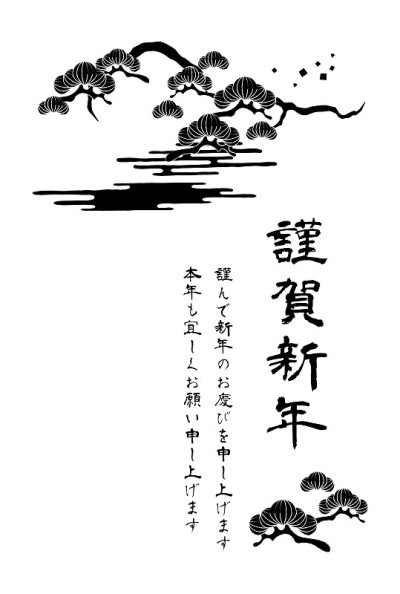 謹賀新年
謹んで新年のお慶びを申し上げます
本年も宜しくお願い申し上げます